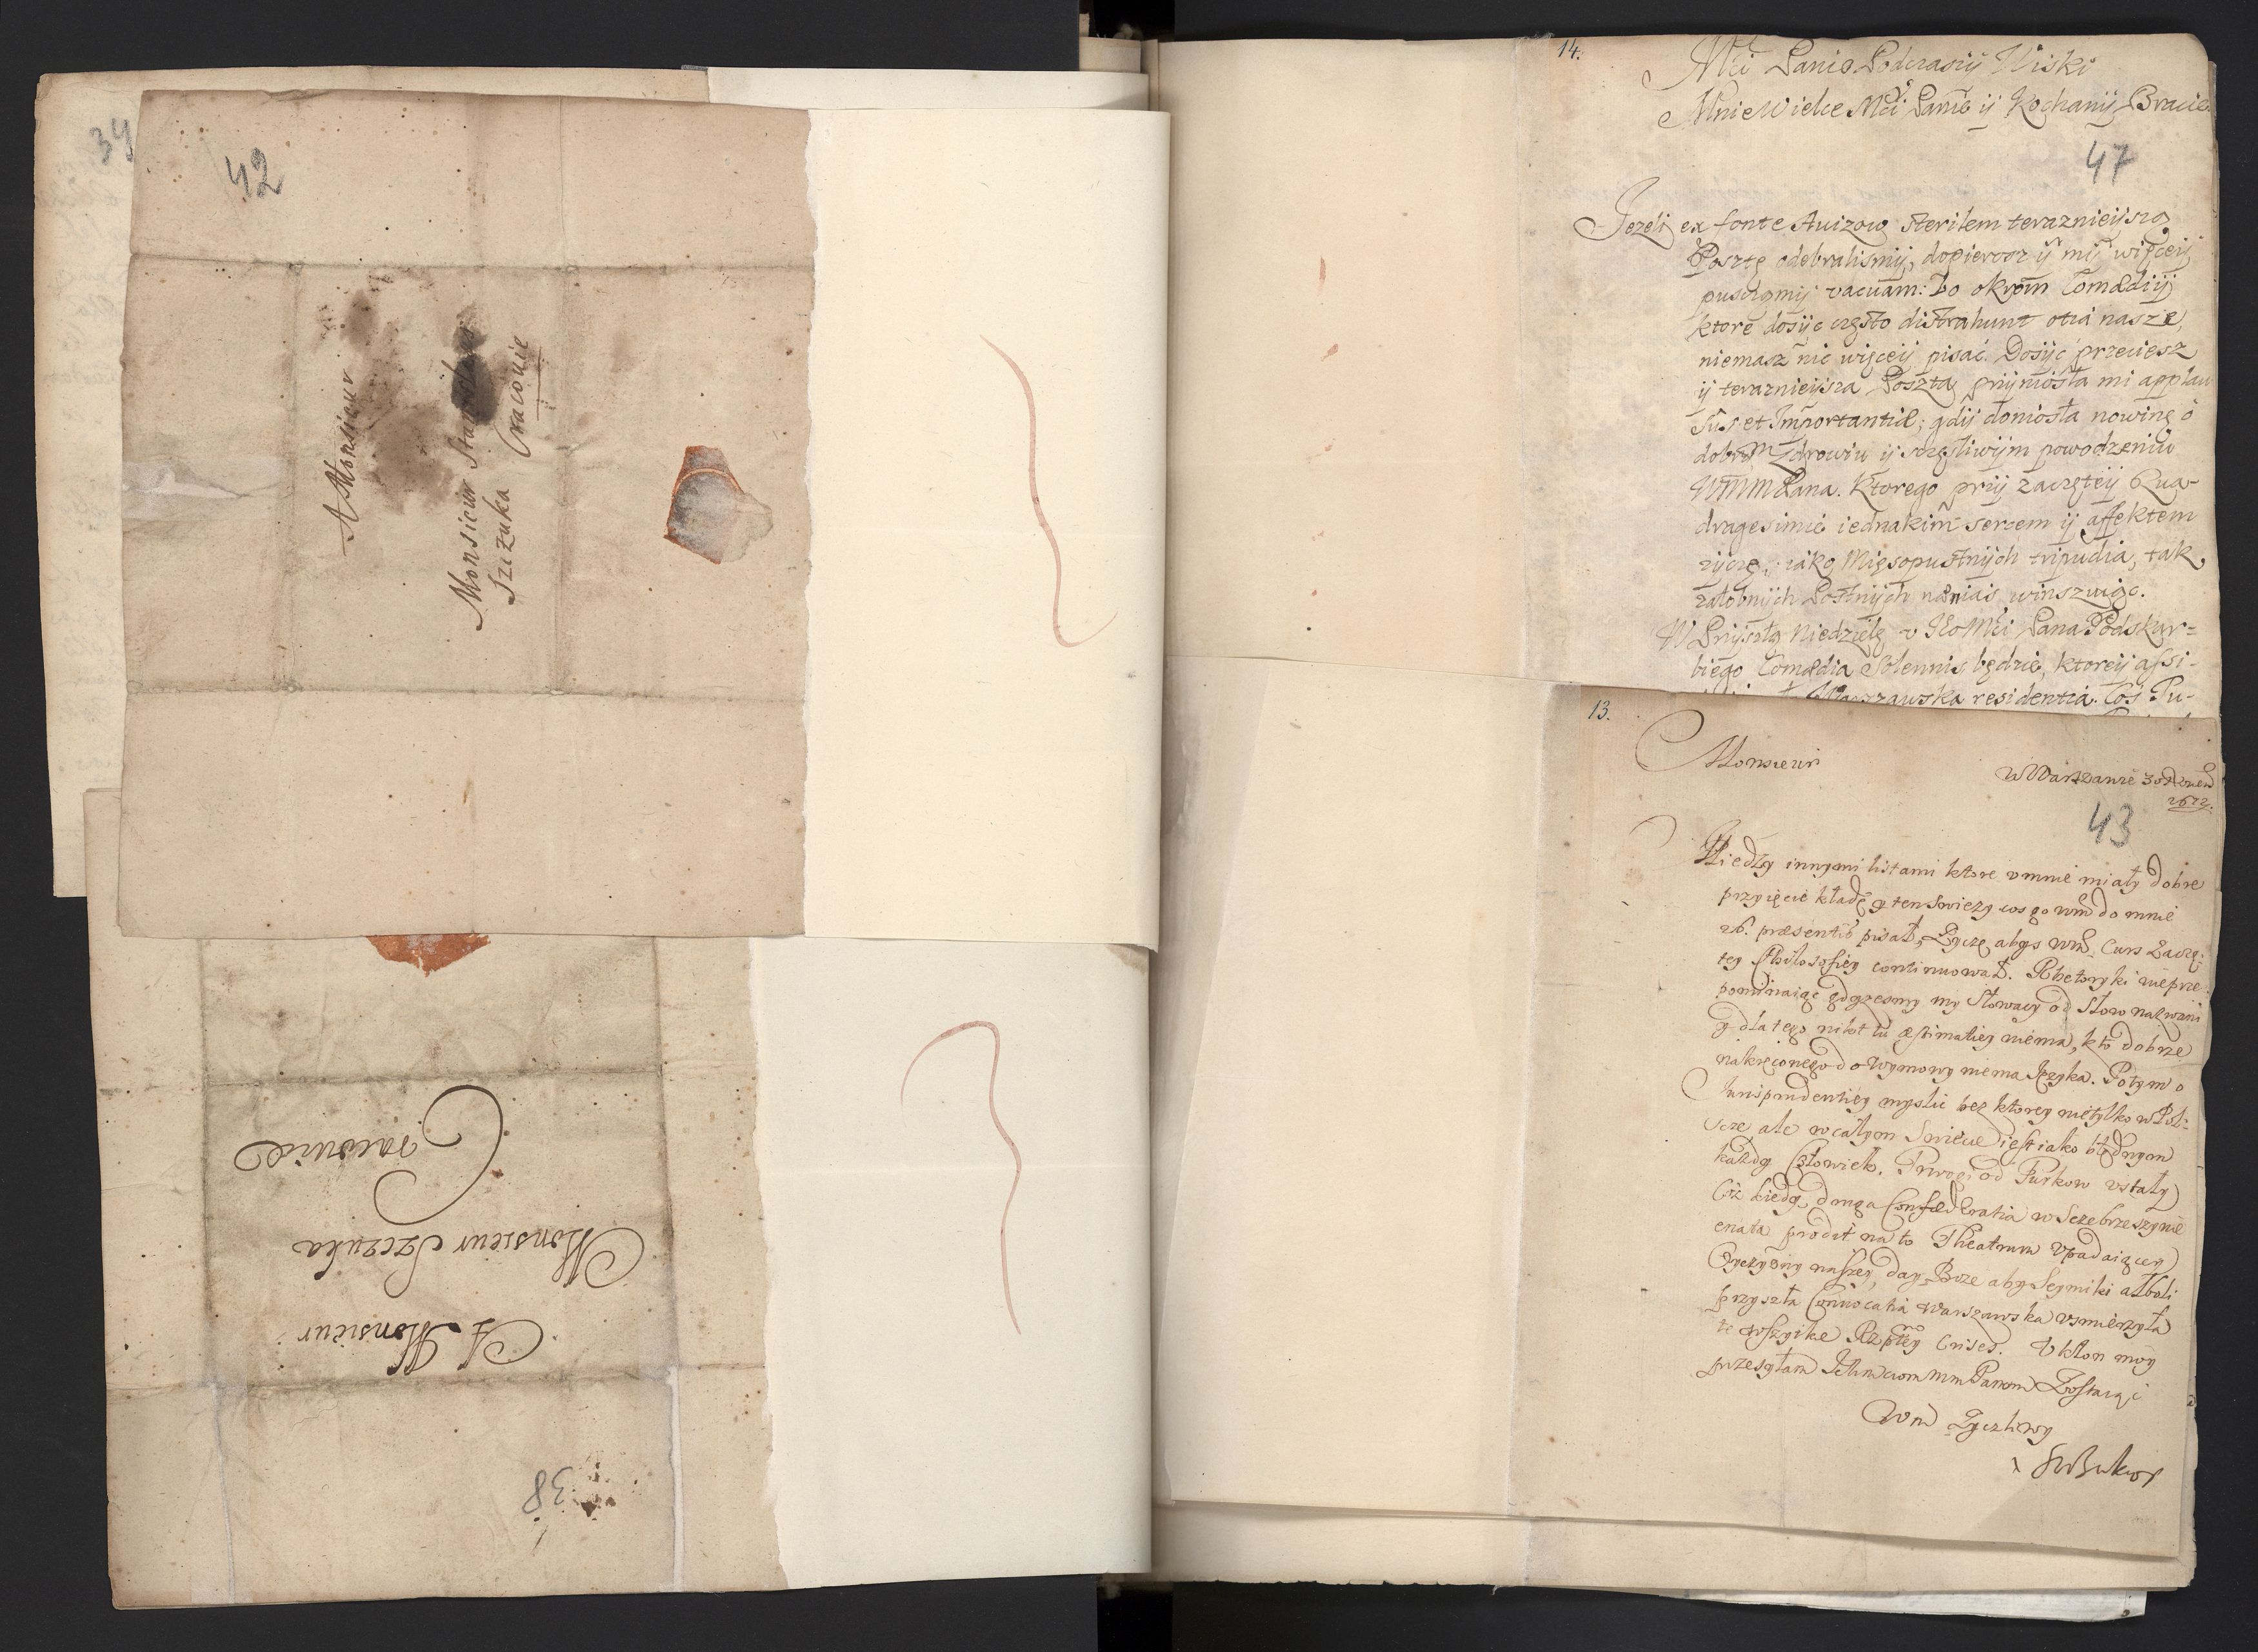 34
42
A Monsieur
Monsieur Stanislaus
Szczuka
Cracovie
A Monsieur
Monsieur Szczuka
Cracovie
38
14.
Mći Panie Podczaszy Wiski
Mnie Wielce Mći Panie ij Kochanij Bracie
47
Jezeli ex fonte Awizow sterilem teraznieijszą
Posztę odebralismij, dopierosz ij mij więceij
pusczymij vacuam: bo okrom Comædiij
ktore dosijc często distrahunt otia nasze,
niemasz nic więceij pisać. Dosijć przeciesz
ij teraznieijsza Poszta prijniosła mi applau
sus et Importantiæ; gdij doniosła nowinę o
dobrym Zdrowiu ij sczęsliwijm powodzeniu
WMM Pana. Ktorego prij zaczęteij Qua-
dragesimie iednakim sercem ij affektem
zijczę, iako Mięsopustnijch tripudia, tak
załobnijch Postnijch nænias winszuiąc.
W Prijszłą Niedzielę v JEoMći Pana Podskar=
biego Comædia Solennis będzie, ktoreij assi-
Warszawska residentia. Cos Pu-
13.
Monsieur
W Warszawie 30 Novem
1672.
43
Miedzy innymi listami ktore v mnie miały dobre
przyięcie kładę y ten swiezy cos go Wm do mnie
26. præsentis pisał, Zyczę abys Wm. Curs Zaczę:
tey Philosofiey continuował. Rhetoryki nieprze
pominaiąc gdyzesmy my Słowacy od Słow nazwani
y dla tego nikt tu æstimatiey niema, kto dobrze
nakręconego do wymowy niema Języka. Potym o
Jurisprudentiey myslic bez ktorey nietylko w Pol:
scze, ale w całym Swiecie iest iako błędnym
kazdy Człowiek. Trwogi od Turkow vstały
Ciz Liedg, druga Confœderatia w Sczebrzeszynie
enata prodit na to Theatrum Vpadaiącey
Oyczyzny naszey, day Boze aby Seymiki alboli
przyszła Convocatia Warszawska vsmierzyła
te wszytke Rzptey Crises. Vkłon moy
przesyłam Ichmciom mm Panom Zostaiąc
Wm Zyczliwy